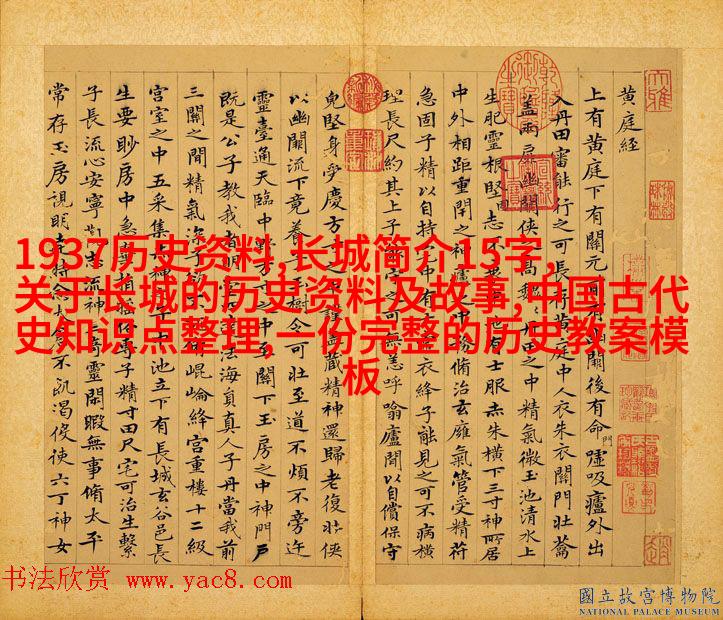 黄庭経
上有黄庭下有關元前有幽闕後有命門嘘吸廬外出
入丹田審能行之可長存黄庭中人衣朱衣關門壯籥
盖兩扉幽關俠之高巍丹田之中精氣微玉池清水上
生肥靈根堅志不衰中池有士服赤朱横下三寸神所居
中外相距重閇之神廬之中務脩治玄廱氣管受精符
急固子精以自持宅中有士衣絳子能見之可不病横
理長尺約其上子能守之可無恙呼噏廬間以自償保守
兔堅身受慶方寸之中謹盖藏精神還歸老復壯俠
以幽闕流下竟養子玉樹令可壯至道不煩不旁迕
靈臺通天臨中野方寸之中至關下玉房之中神門戶
既是公子教我者明堂四達法海員真人子丹當我前
三關之間精氣深子欲不死脩崐崘絳宫重樓十二級
宫室之中五采集赤神之子中池立下有長城玄谷邑長
生要眇房中急棄捐摇俗專子精寸田尺宅可治生繫
子長流心安寧觀志流神三奇靈閒暇無事脩太平
常存玉房視明達時念太倉不飢渴役使六丁神女
1937历史资料,长城简介15字,
关于长城的历史资料及故事,中国古代
史知识点整理,一份完整的历史教案模
板
书法欣赏 www.yac8.com
國立故宮博物院
NATIONAL PALACE MUSEUM